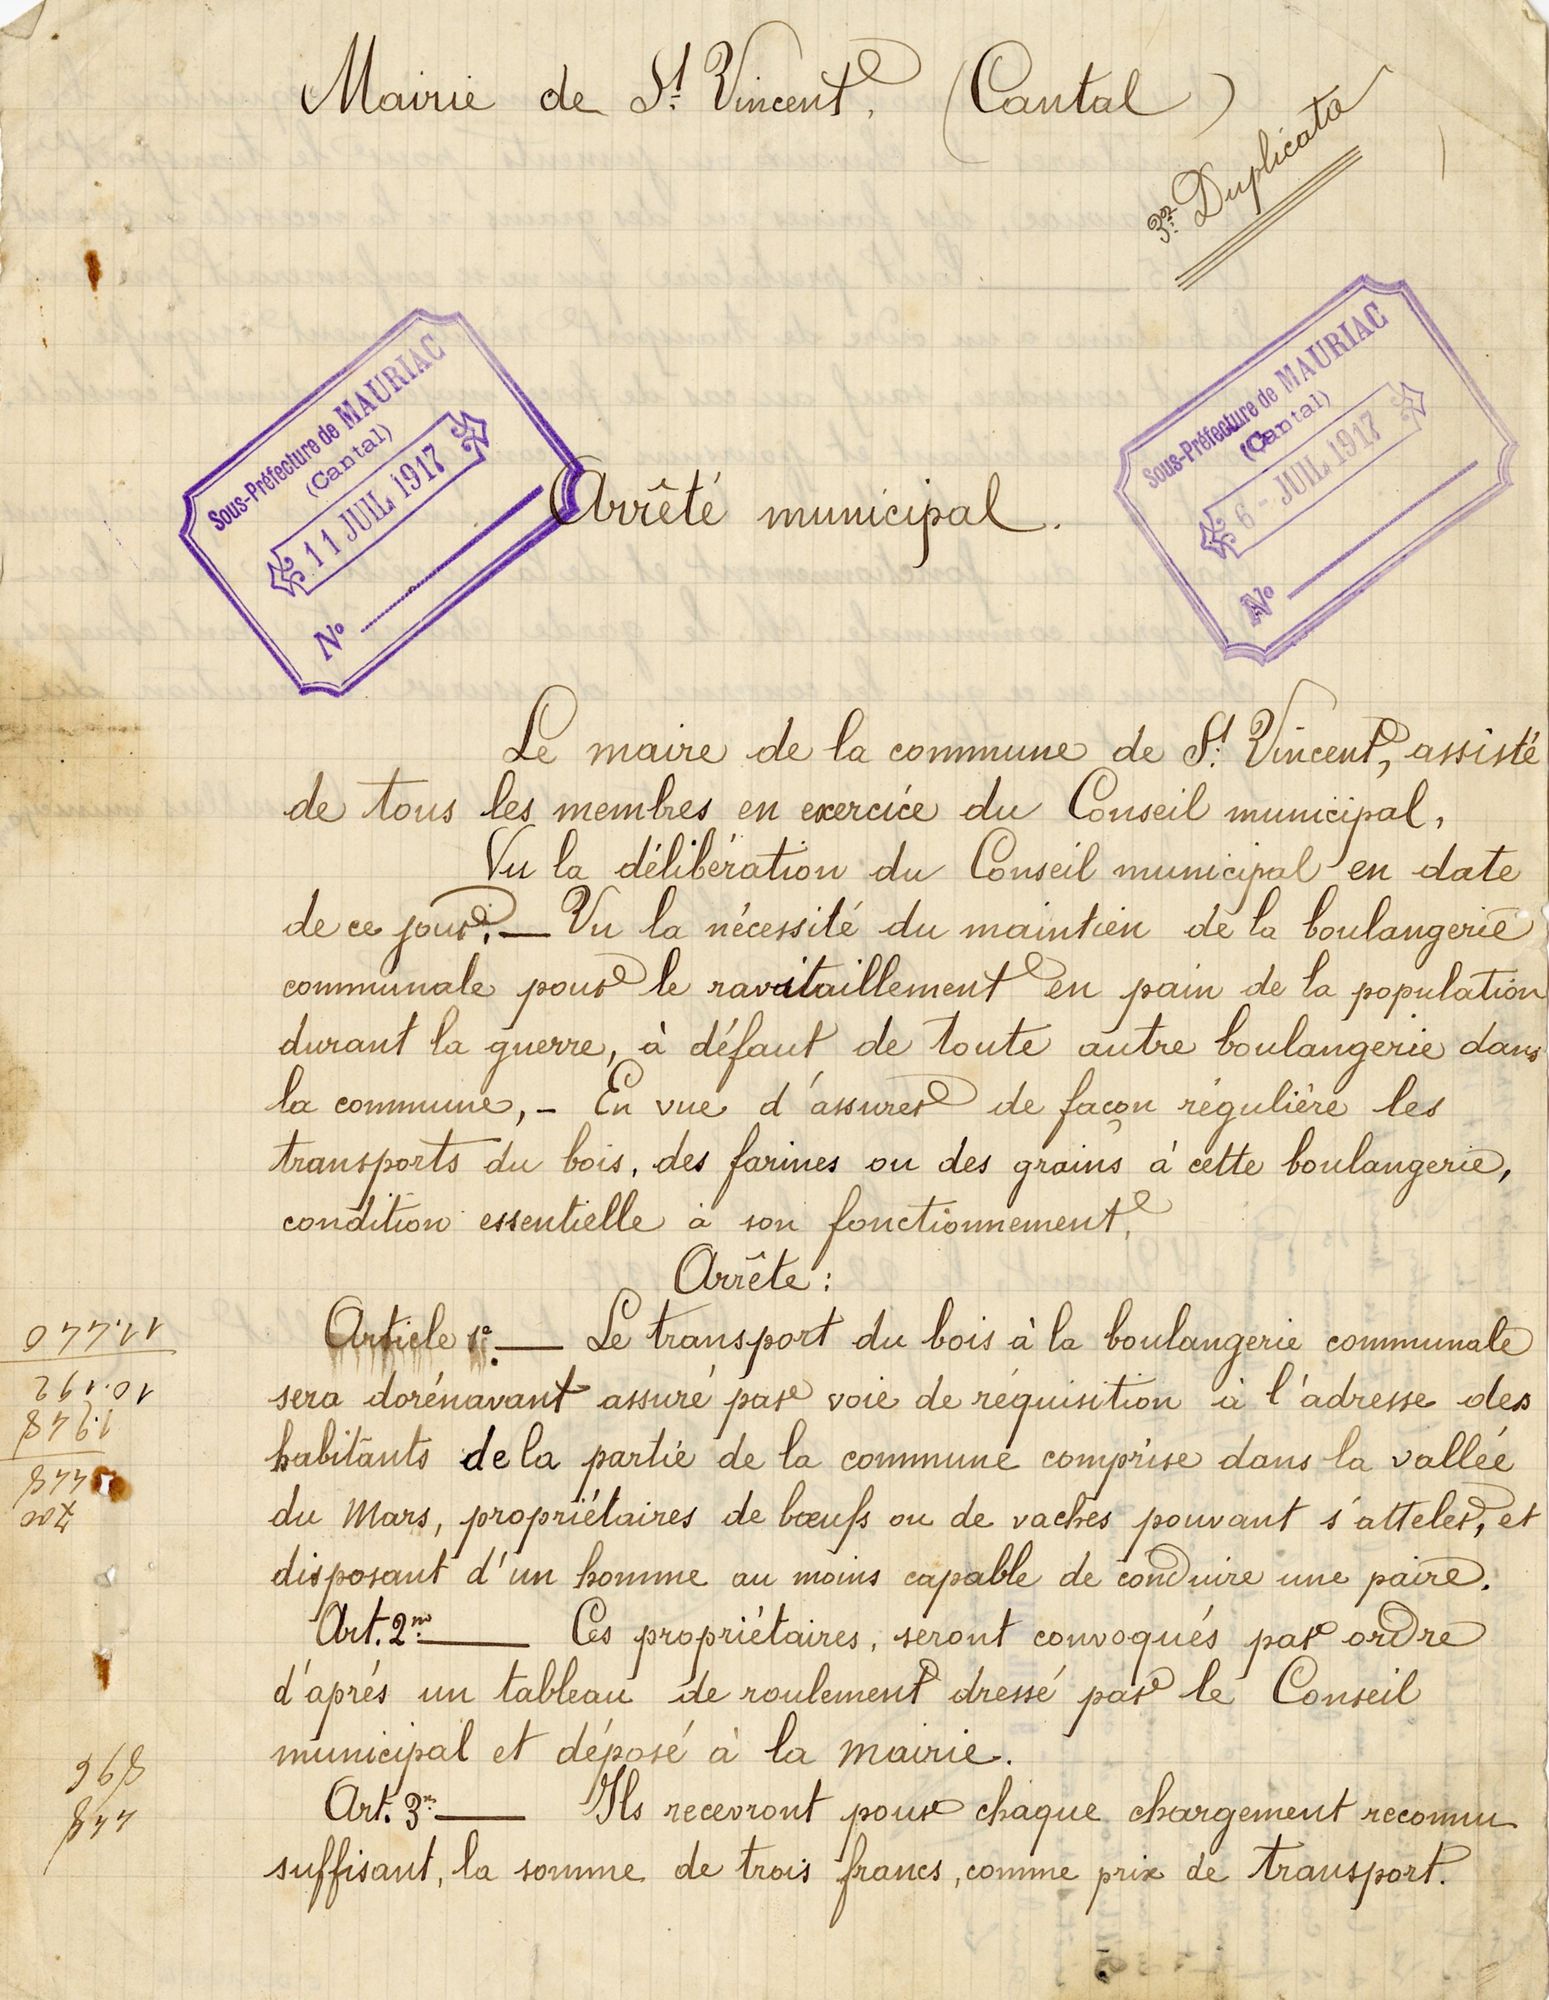 Mairie de St. Vincent, (Cantal)
3e Duplicata
Sous-Préfecture de MAURIAC
(Cantal)
11 JUIL 1917
No
Sous-Préfecture de MAURIAC
(Cantal)
6 - JUIL 1917
No
Arrêté municipal.
Le maire de la commune de St. Vincent, assisté
de tous les membres en exercice du Conseil municipal,
Vu la délibération du Conseil municipal en date
de ce jour. — Vu la nécessité du maintien de la boulangerie
communale pour le ravitaillement en pain de la population
durant la guerre, à défaut de toute autre boulangerie dans
la commune, - En vue d'assurer de façon régulière les
transports du bois, des farines ou des grains à cette boulangerie,
condition essentielle à son fonctionnement,
Arrête :
Article 1e. — Le transport du bois à la boulangerie communale
sera dorénavant assuré par voie de réquisition à l'adresse des
habitants de la partie de la commune comprise dans la vallée
du Mars, propriétaires de bœufs ou de vaches pouvant s'atteler, et
disposant d'un homme au moins capable de conduire une paire.
Art. 2me — Ces propriétaires, seront convoqués par ordre
d'aprés un tableau de roulement dressé par le Conseil
municipal et déposé à la mairie.
Art. 3me — Ils recevront pour chaque chargement reconnu
suffisant, la somme de trois francs, comme prix de transport.